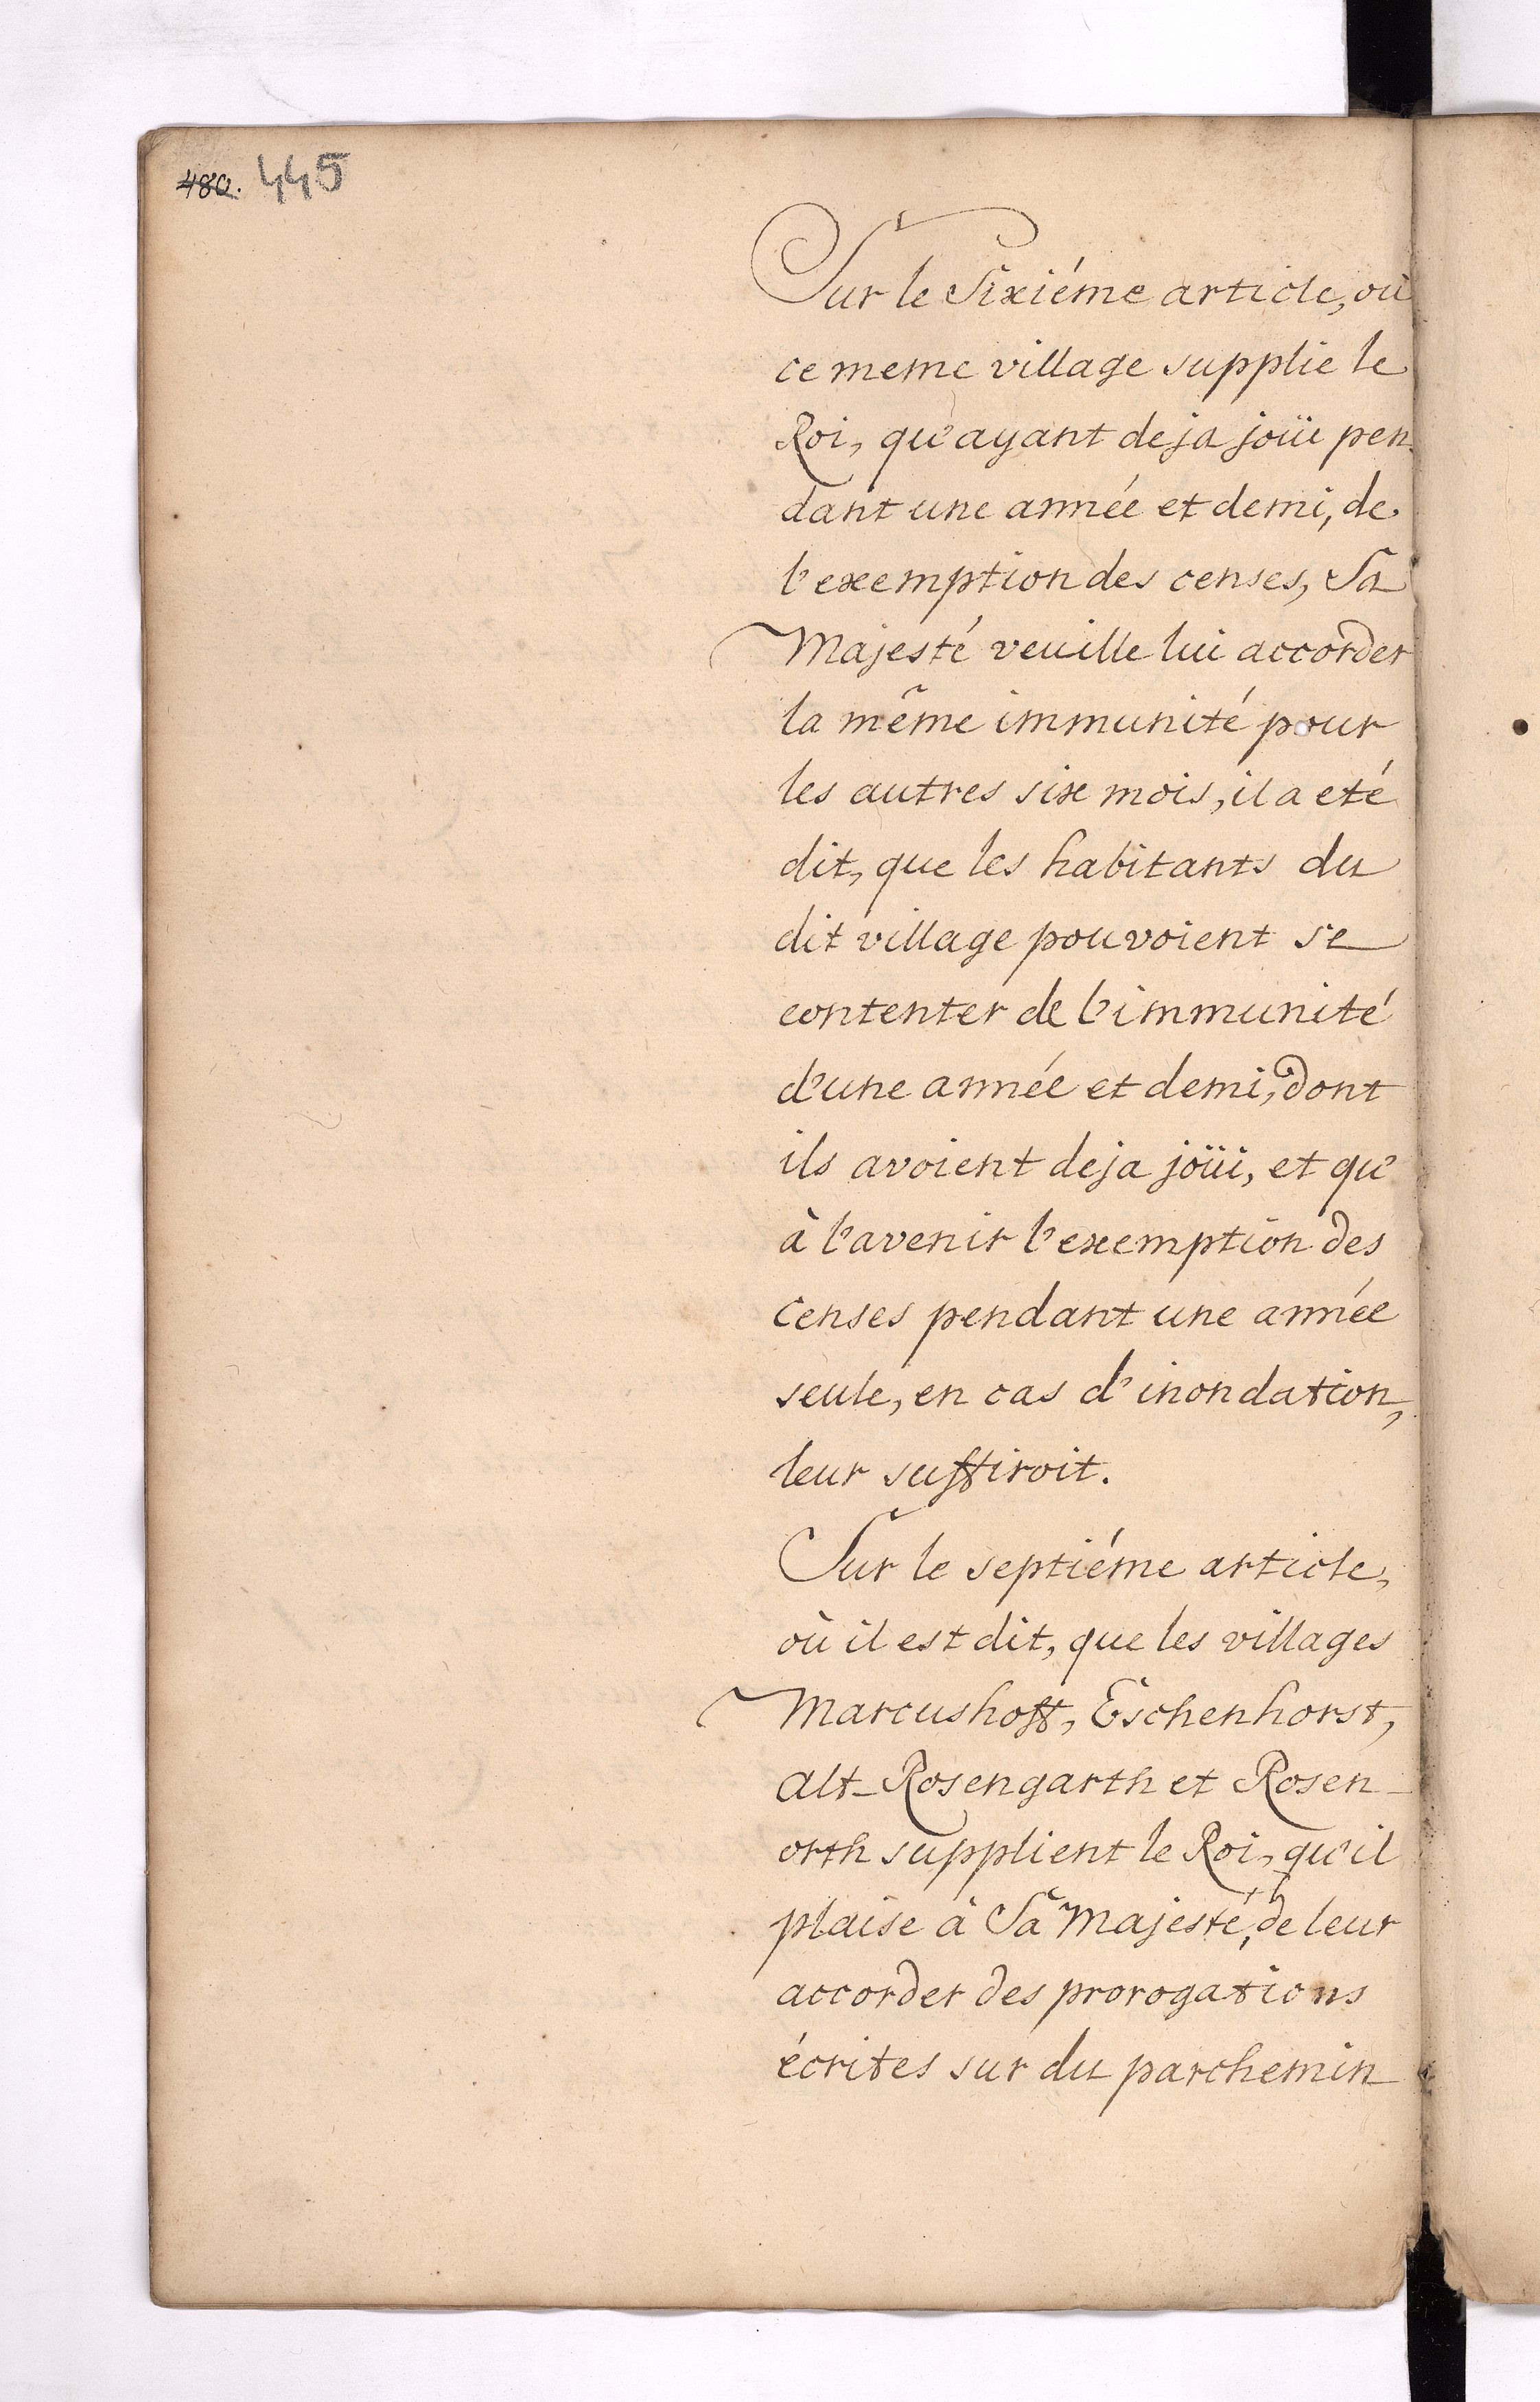 480. 445
Sur le Sixiéme article, où
ce meme village supplie le
Roi, qu'ayant deja joüi pen
dant une année et demi, de
l'exemption des censes, Sa
Majesté veuille lui accorder
la même immunité pour
les autres six mois, il a eté
dit, que les habitants du
dit village pouvoient se
contenter de l'immunité
d'une année et demi, dont
ils avoient deja joüi, et qu'
à l'avenir l'exemption des
censes pendant une année
seule, en cas d'inondation,
leur suffiroit.
Sur le septiéme article,
où il est dit, que les villages
Marcushoff, Eschenhorst,
alt-Rosengarth et Rosen-
orth supplient le Roi, qu'il
plaise à Sa Majesté, de leur
accorder des prorogations
écrites sur du parchemin